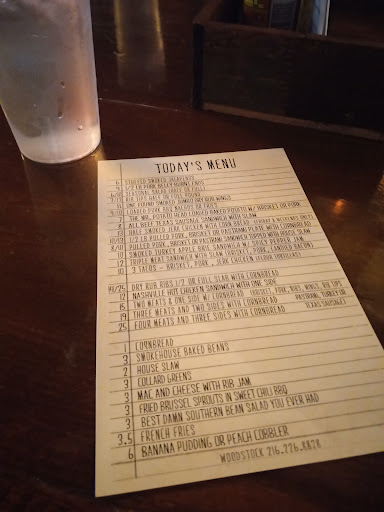 TODAY'S MENU
6 STUFFED SMOKED JALAPENOS
1/2 LB PORK BELLY BURNT ENDS
SEASONAL SALAD
RIB TIPS HALF OR FULL
ONE POUND SMOKED JUMBO DRY RUB WINGS
LOADED PORK RIND NACHOS OR FRIES
THE MR. POTATO HEAD LOADED BAKED POTATO W/ BRISKET OR PORK
ALL BEEF TEXAS SAUSAGE SANDWICH WITH SLAW
HALF SMOKED JERK CHICKEN WITH CORN BREAD
1/2 LB PULLED PORK, BRISKET OR PASTRAMI PLATE WITH CORNBREAD
PULLED PORK, BRISKET OR PASTRAMI SANDWICH WITH HOUSE SLAW
10 SMOKED TURKEY APPLE BRIE SANDWICH W/ SPICY PEPPER JAM
12 TRIPLE MEAT SANDWICH WITH SLAW
10 3 TACOS - BRISKET, PORK, JERK CHICKEN
DRY RUB RIBS 1/2 OR FULL SLAB WITH CORNBREAD
12 NASHVILLE HOT CHICKEN SANDWICH WITH ONE SIDE
15 TWO MEATS & ONE SIDE W/ CORNBREAD
19 THREE MEATS AND TWO SIDES WITH CORNBREAD
25 FOUR MEATS AND THREE SIDES WITH CORNBREAD
TEXAS SAUSAGES
1 CORNBREAD
3 SMOKEHOUSE BAKED BEANS
2 HOUSE SLAW
3 COLLARD GREENS
3 MAC AND CHEESE WITH RIB JAM
3 FRIED BRUSSEL SPROUTS IN SWEET CHILI BBQ
3 BEST DAMN SOUTHERN BEAN SALAD YOU EVER HAD
3.5 FRENCH FRIES
6 BANANA PUDDING OR PEACH COBBLER
WOODSTOCK 216.226.8828